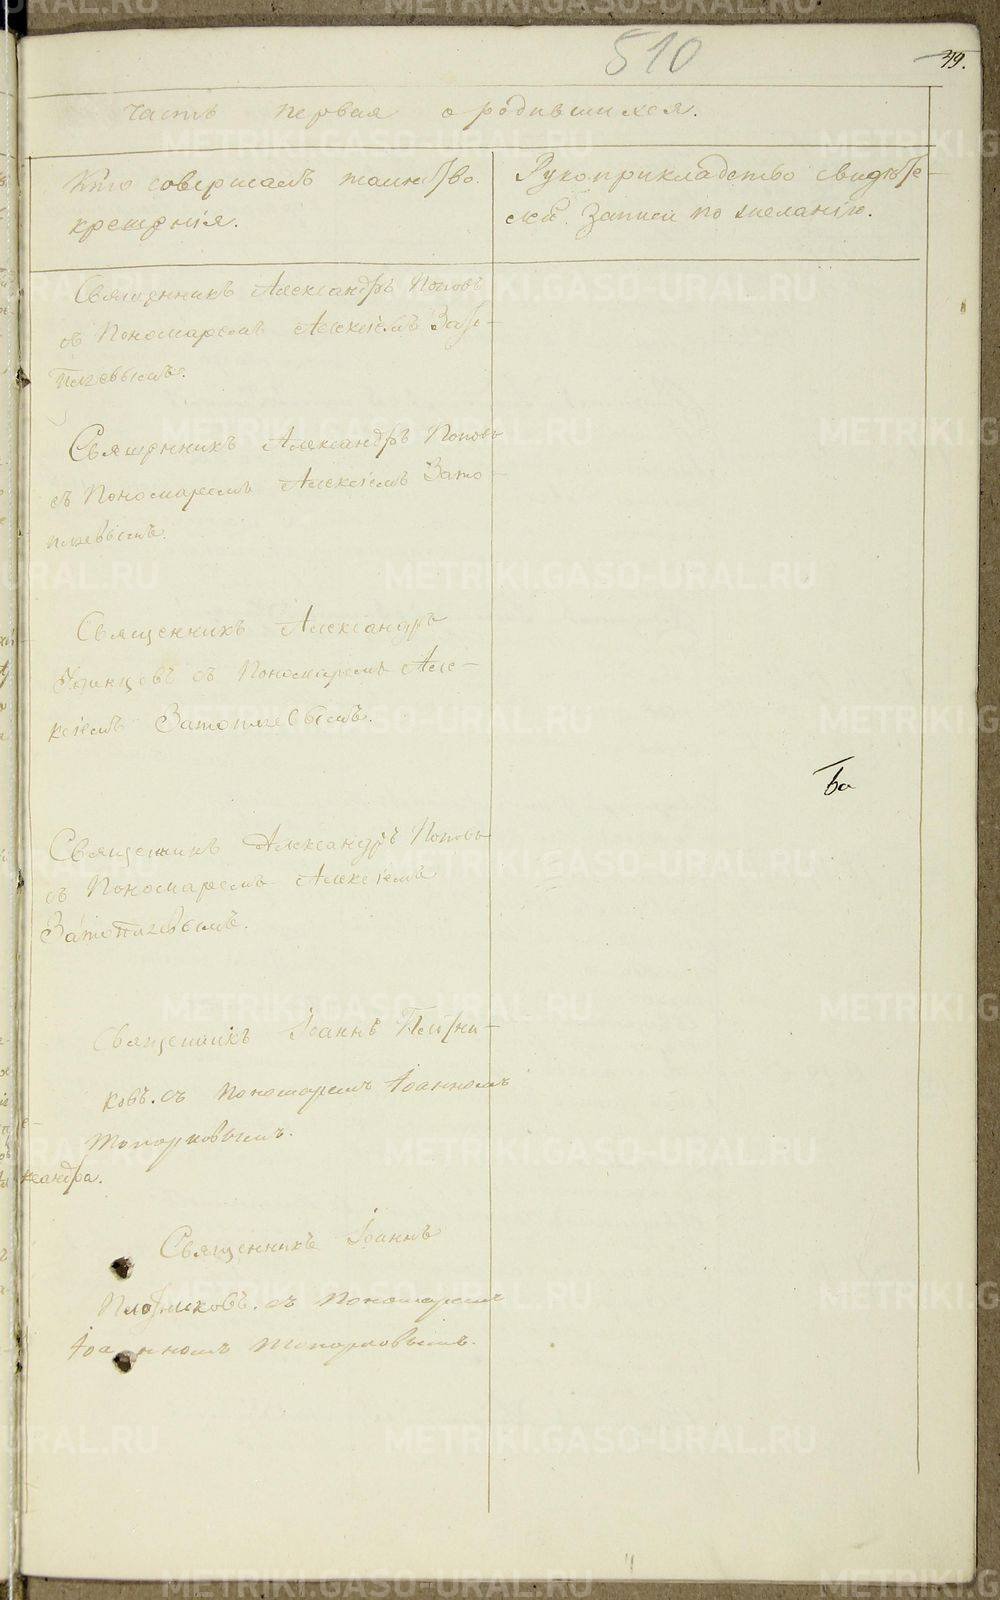 510
49.
Часть первая о родившихся.
Кто совершалъ таинство
крещенія.
Рукоприкладство свидѣте-
лей записи по желанію.
Священникъ Александръ Поповъ
съ Пономаремъ Алексіемъ Зато-
пляевымъ.
Священникъ Александръ Поповъ
съ Пономаремъ Алексіемъ Зато-
пляевымъ.
Священникъ Александръ
съ Пономаремъ Але-
ксіемъ Затопляевымъ.
Священникъ Александръ Поповъ
съ Пономаремъ Алексіемъ
Затопляевымъ.
Священникъ Іоаннъ Плотни-
ковъ. съ Пономаремъ Іоанномъ
Топорковымъ.
ксандра.
Священникъ Іоаннъ
Плотниковъ. съ Пономаремъ
Іоанномъ Топорковымъ.
METRIKI.GASO-URAL.RU